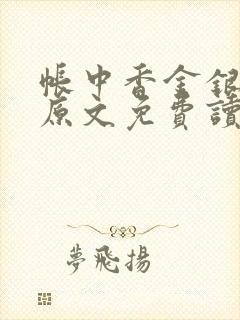 帳中香金銀
原文免費讀
夢飛揚